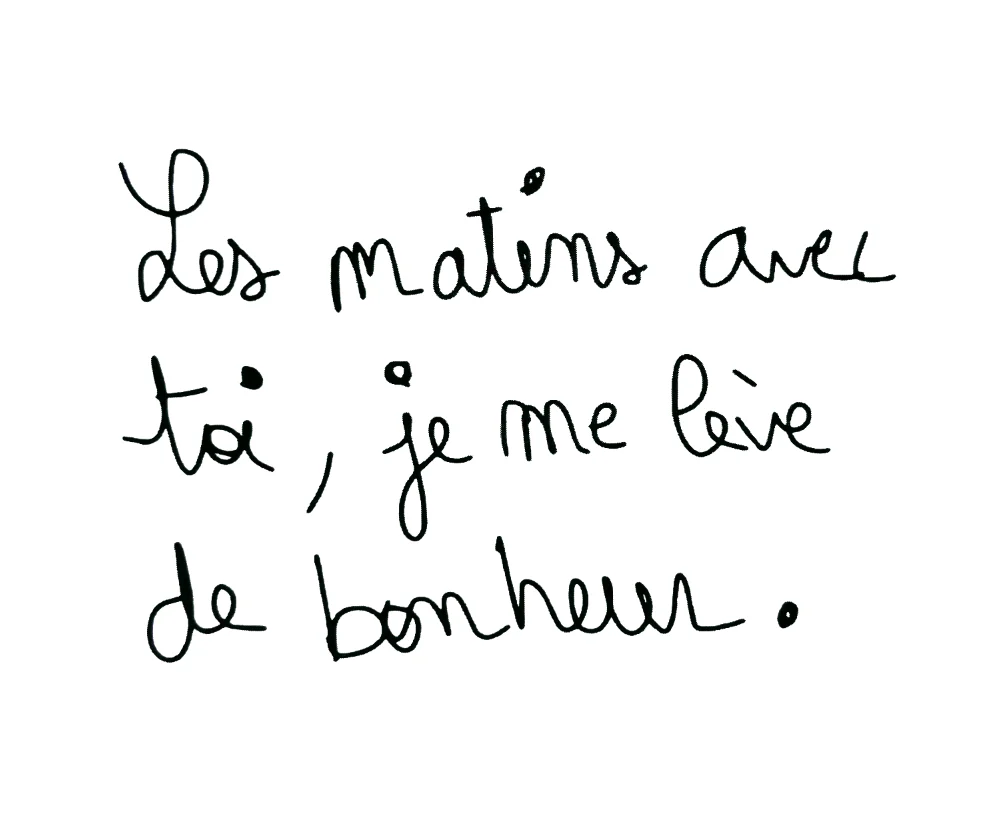 Les matins avec
toi, je me lève
de bonheur.